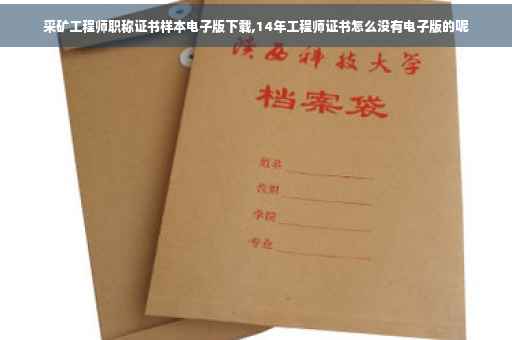 采矿工程师职称证书样本电子版下载,14年工程师证书怎么没有电子版的呢
陕西科技大学
档案袋
姓名
性别
学院
专业